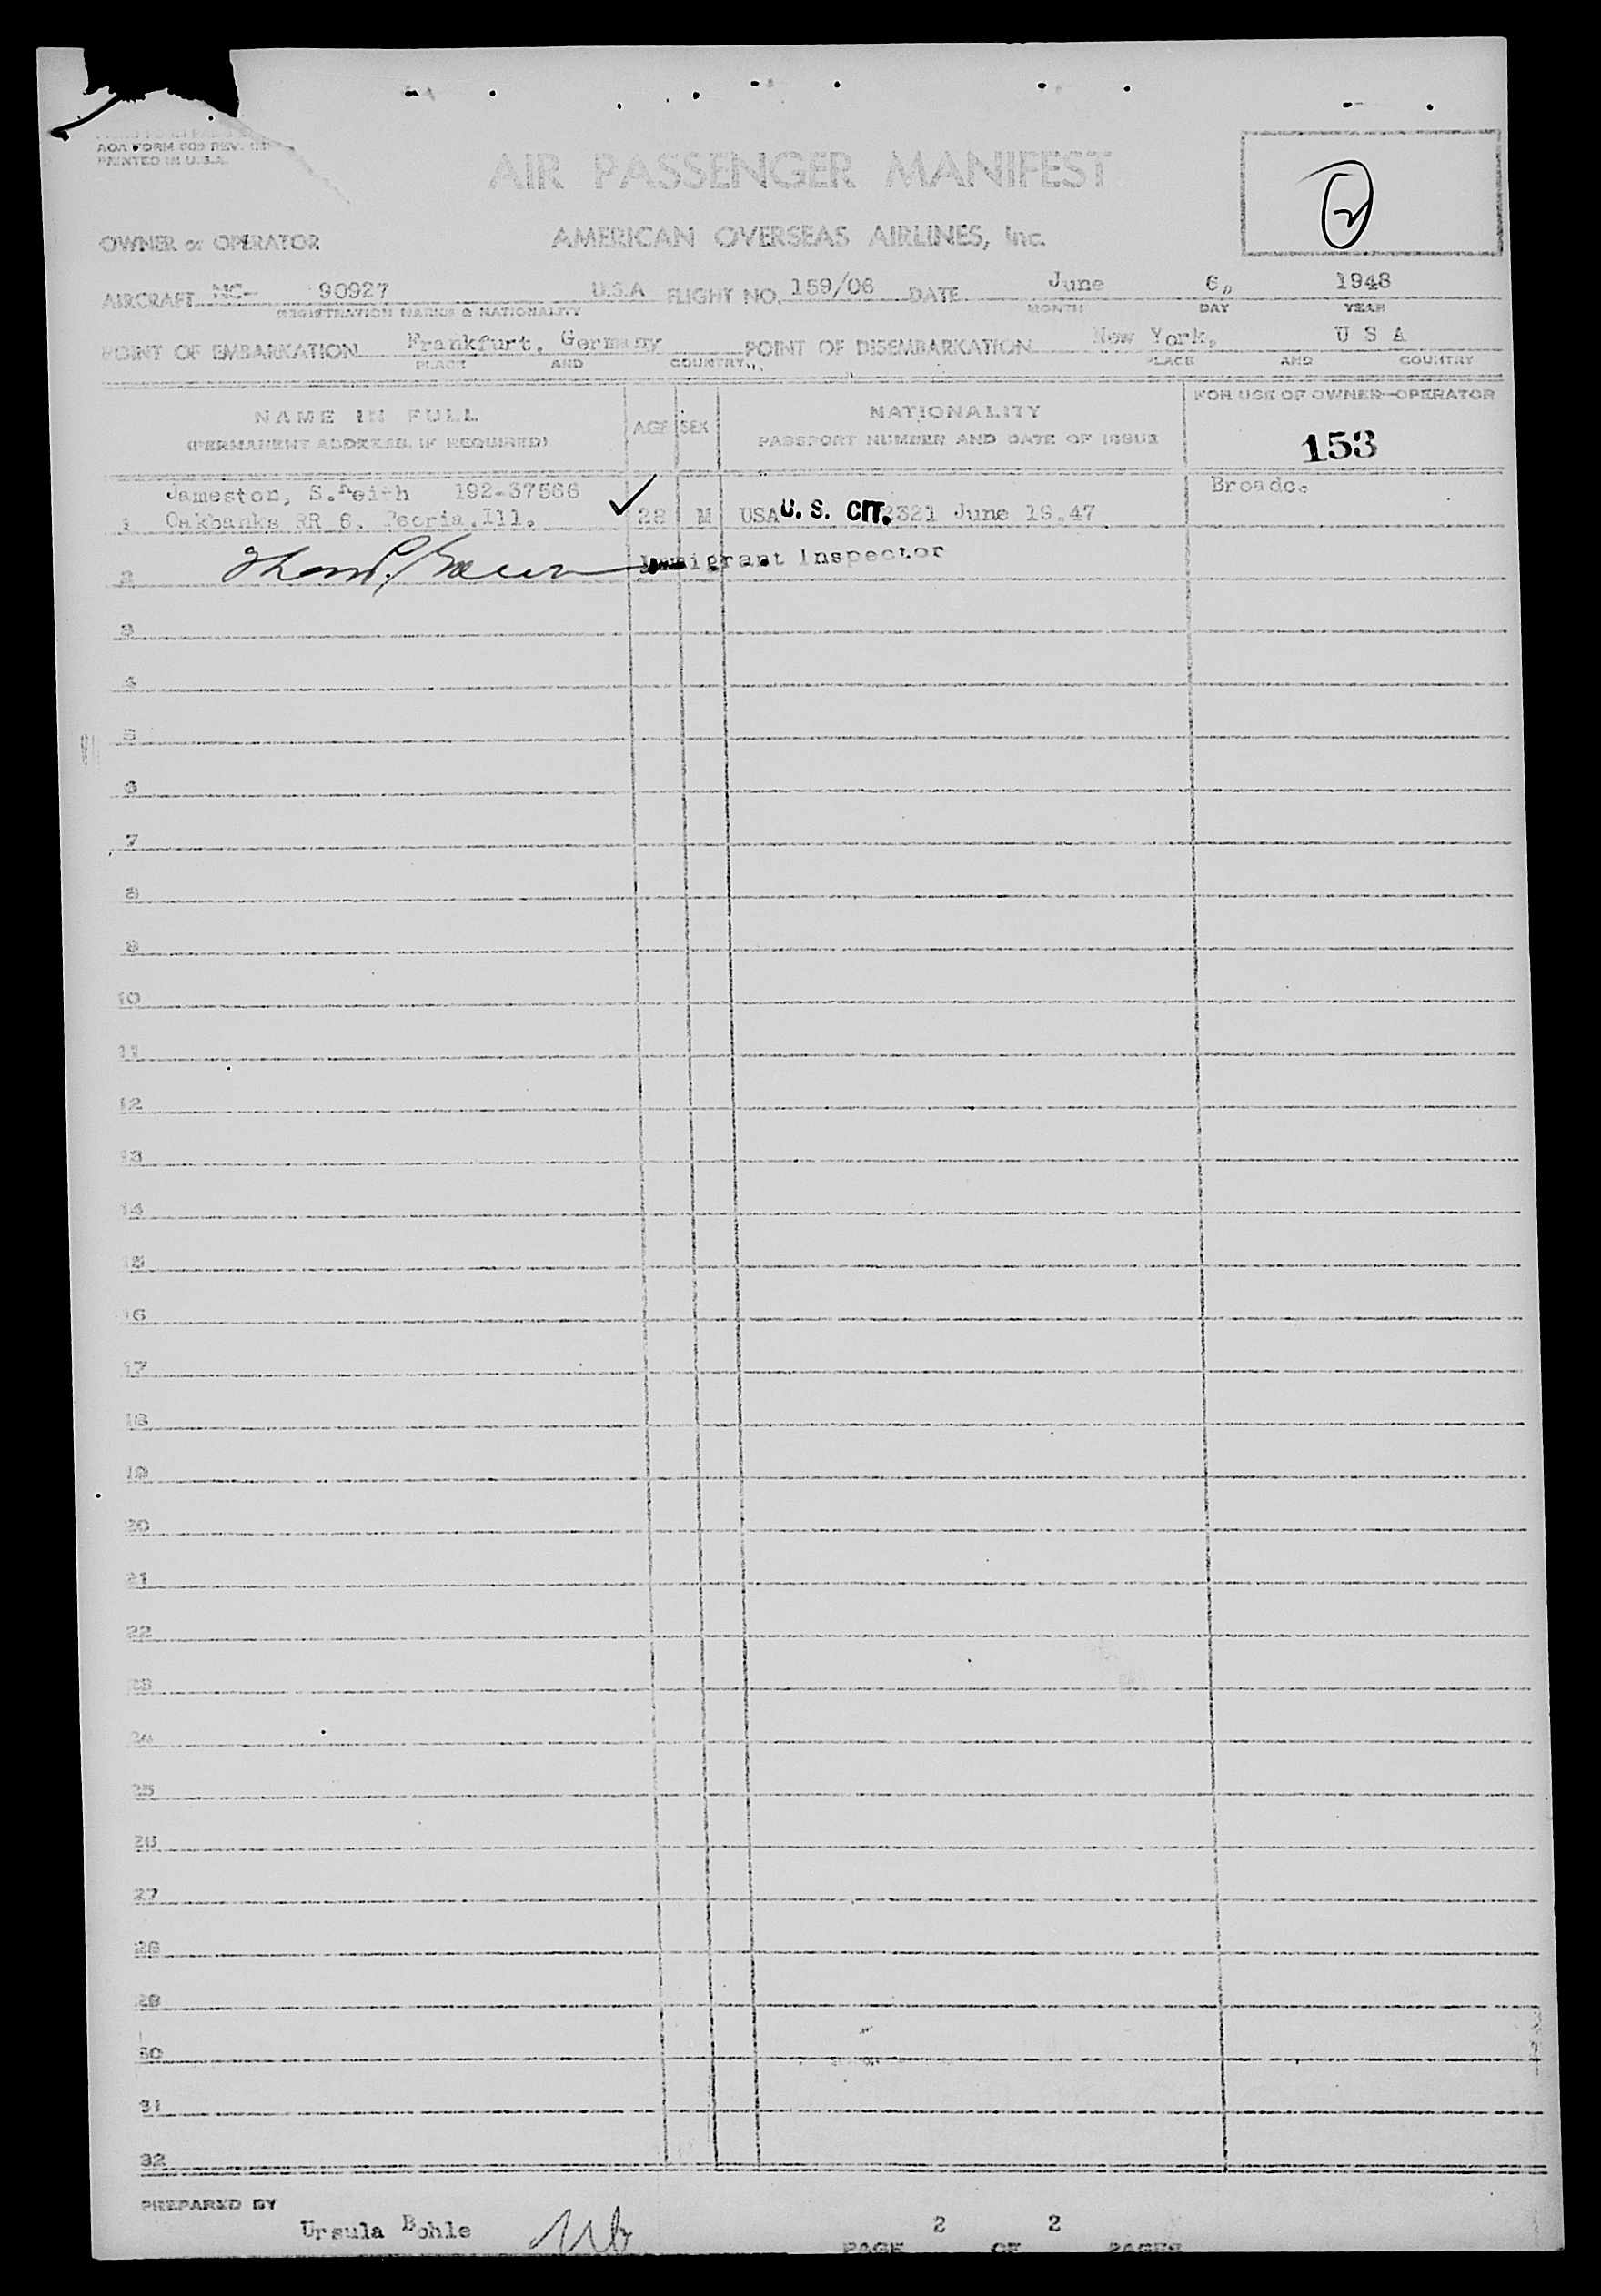 AOA FORM 609 REV.
PRINTED IN U.S.A.
AIR PASSENGER MANIFEST
2
OWNER or OPERATOR AMERICAN OVERSEAS AIRLINES, Inc.
AIRCRAFT NC- 90927 U.S.A FLIGHT NO. 159/06 DATE June 6, 1948
REGISTRATION MARKS & NATIONALITY MONTH DAY YEAR
POINT OF EMBARKATION Frankfurt, Germany POINT OF DISEMBARKATION New York, U S A
PLACE AND COUNTRY PLACE AND COUNTRY
NAME IN FULL AGE SEX NATIONALITY FOR USE OF OWNER-OPERATOR
(PERMANENT ADDRESS, IF REQUIRED) PASSPORT NUMBER AND DATE OF ISSUE 153
Jameston, S.Keith 192-37566 Broadc.
1 Oakbanks RR 6. Peoria.Ill. 28 M USA U. S. CIT. 2321 June 19.47
2 Immigrant Inspector
3
4
5
6
7
8
9
10
11
12
13
14
15
16
17
18
19
20
21
22
23
24
25
26
27
28
29
30
31
32
PREPARED BY
Ursula Bohle 2 2
PAGE OF PAGES